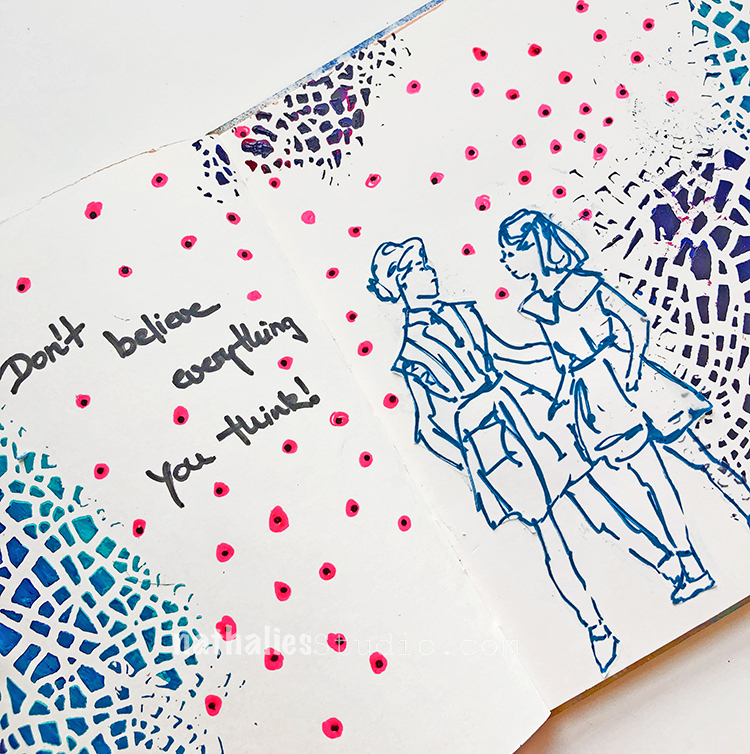 Don't believe
everything
you think!
nathaliesstudio.com